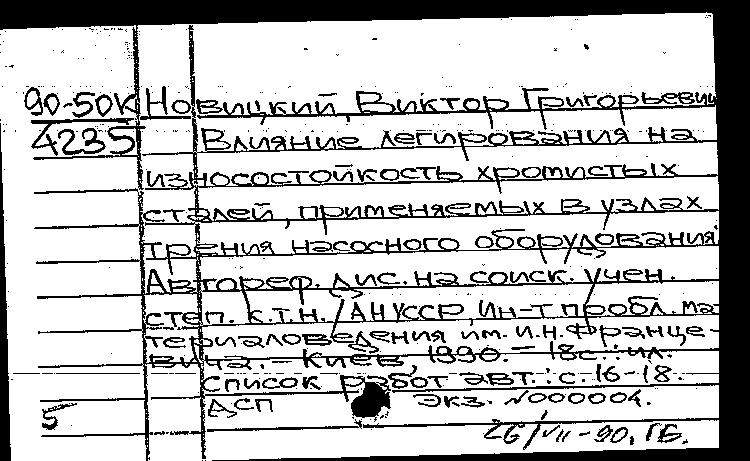 90-50К Новицкий, Виктор Григорьевич
4235 Влияние легирования на
износостойкость хромистых
сталей, применяемых в узлах
трения насосного оборудования:
Автореф. дис. на соиск. учен.
степ. к.т.н. / АН УССР, Ин-т пробл. ма-
териаловедения им. И.Н. Франце-
вича. - Киев, 1990. - 18с.: ил.
Список работ авт.: с. 16-18.
ДСП Экз. №000004.
5
26/VII-90. ГБ.